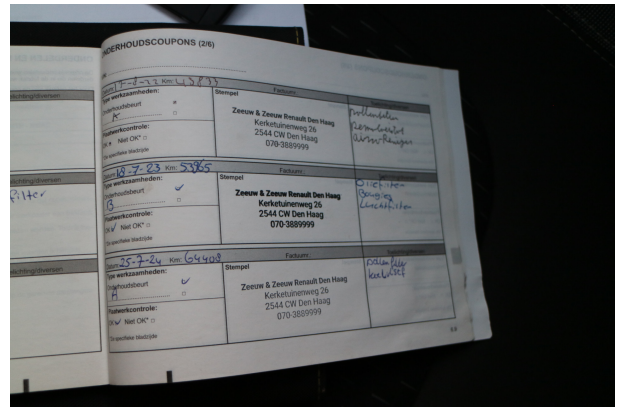 ONDERHOUDSCOUPONS (2/6)
Km: 43833
Type werkzaamheden:
Onderhoudsbeurt
A
Plaatwerkcontrole:
OK Niet OK*
Zie specifieke bladzijde
Stempel
Factuurnr.:
Zeeuw & Zeeuw Renault Den Haag
Kerketuinenweg 26
2544 CW Den Haag
070-3889999
pollenfilter
Datum: 18-7-23 Km: 53965
Type werkzaamheden:
Onderhoudsbeurt
B
Plaatwerkcontrole:
OK Niet OK*
Zie specifieke bladzijde
Stempel
Factuurnr.:
Zeeuw & Zeeuw Renault Den Haag
Kerketuinenweg 26
2544 CW Den Haag
070-3889999
Oliefilter
Bougies
Luchtfilter
Datum: 25-7-24 Km: 64408
Type werkzaamheden:
Onderhoudsbeurt
A
Plaatwerkcontrole:
OK Niet OK*
Zie specifieke bladzijde
Stempel
Factuurnr.:
Zeeuw & Zeeuw Renault Den Haag
Kerketuinenweg 26
2544 CW Den Haag
070-3889999
filter